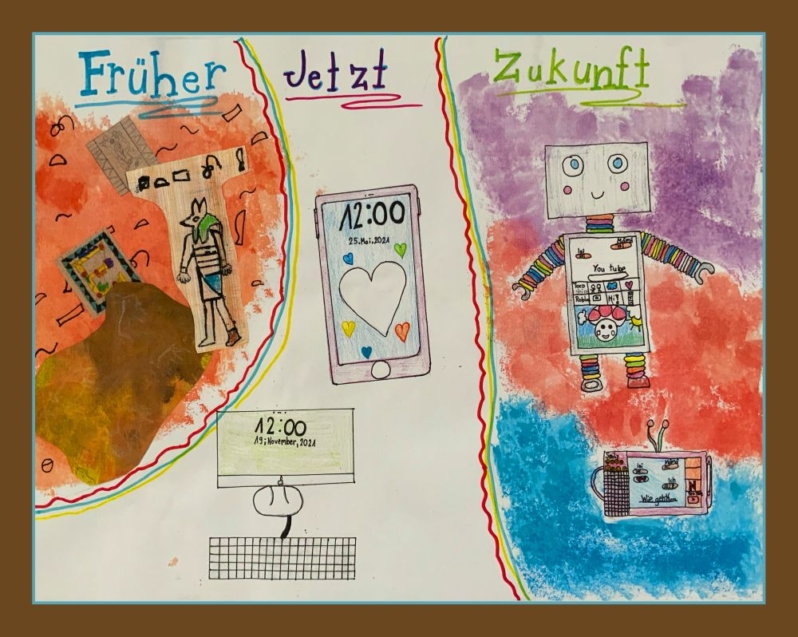 Früher
Jetzt
Zukunft
12:00
25.Mai.2021
12:00
19;November,2021
You tube